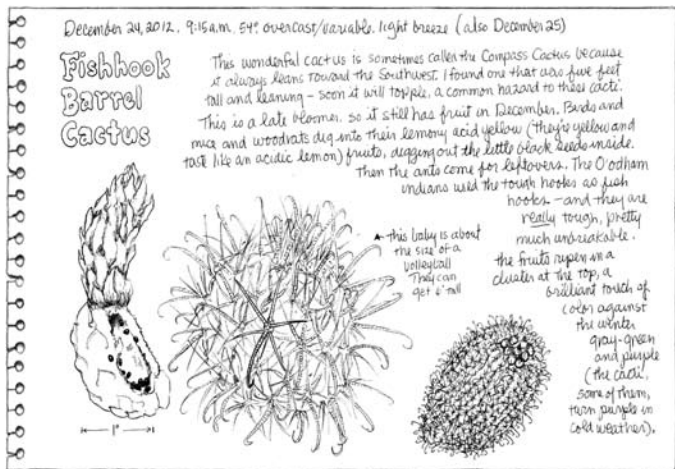 December 24, 2012. 9:15 a.m. 54° overcast/variable. light breeze (also December 25)
Fishhook
Barrel
Cactus
This wonderful cactus is sometimes called the Compass Cactus because
it always leans toward the Southwest. I found one that was five feet
tall and leaning – soon it will topple, a common hazard to these cacti.
This is a late bloomer. so it still has fruit in December. Birds and
mice and woodrats dig into their lemony acid yellow (they're yellow and
taste like an acidic lemon) fruits, digging out the little black seeds inside.
Then the ants come for leftovers. The O'odham
indians used the tough hooks as fish
hooks – and they are
really tough, pretty
much unbreakable.
the fruits ripen in a
cluster at the top, a
brilliant touch of
color against
the winter
gray-green
and purple
(the cacti,
some of them,
turn purple in
cold weather).
this baby is about
the size of a
volleyball
They can
get 6' tall
1"